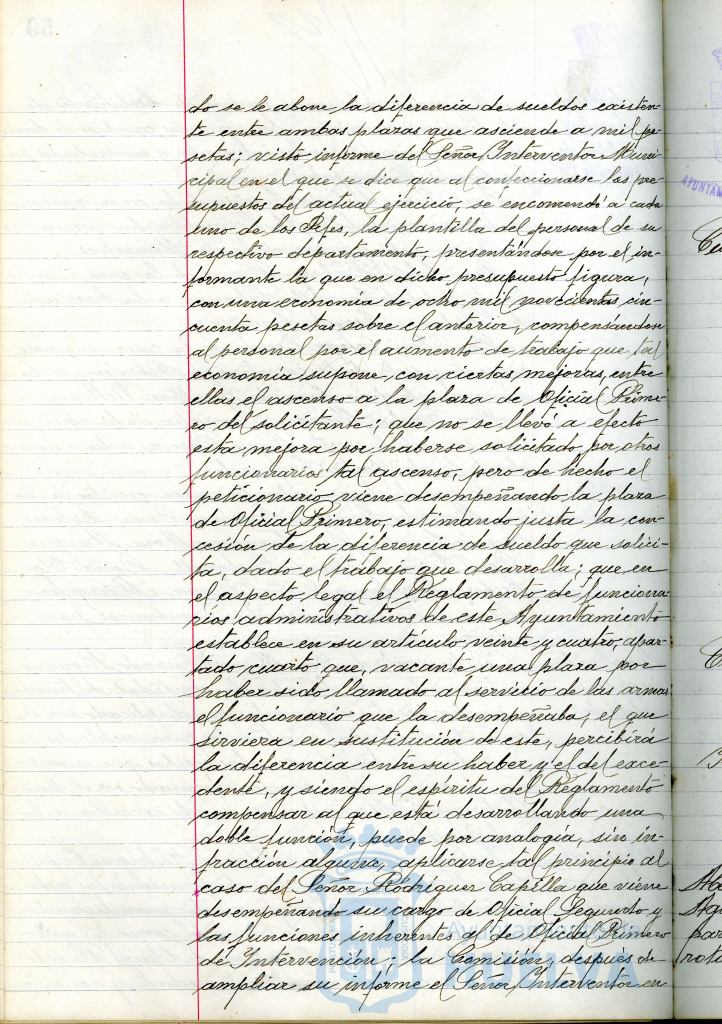 do se le abone la diferencia de sueldos existen-
te entre ambas plazas que asciende a mil pe-
setas; visto informe del Señor Interventor Muni-
cipal en el que se dice que al confeccionarse los pre-
supuestos del actual ejercicio, se encomendó a cada
uno de los Jefes, la plantilla del personal de su
respectivo departamento, presentándose por el in-
formante la que en dicho presupuesto figura,
con una economía de ocho mil novecientas cin-
cuenta pesetas sobre el anterior, compensándose
al personal por el aumento de trabajo que tal
economía supone, con ciertas mejoras, entre
ellas el ascenso a la plaza de Oficial Prime-
ro del solicitante; que no se llevó a efecto
esta mejora por haberse solicitado por otros
funcionarios tal ascenso, pero de hecho el
peticionario viene desempeñando la plaza
de Oficial Primero, estimando justa la con-
cesión de la diferencia de sueldo que solici-
ta, dado el trabajo que desarrolla; que en
el aspecto legal el Reglamento de funciona-
rios administrativos de este Ayuntamiento
establece en su artículo veinte y cuatro, apar-
tado cuarto que, vacante una plaza por
haber sido llamado al servicio de las armas
el funcionario que la desempeñaba, el que
sirviera en sustitución de este, percibirá
la diferencia entre su haber y el del exce-
dente, y siendo el espíritu del Reglamento
compensar al que está desarrollando una
doble función, puede por analogía, sin in-
fracción alguna, aplicarse tal principio al
caso del Señor Rodríguez Capilla que viene
desempeñando su cargo de Oficial Segundo y
las funciones inherentes al de Oficial Primero
de Intervención; la Comisión, después de
ampliar su informe el Señor Interventor en